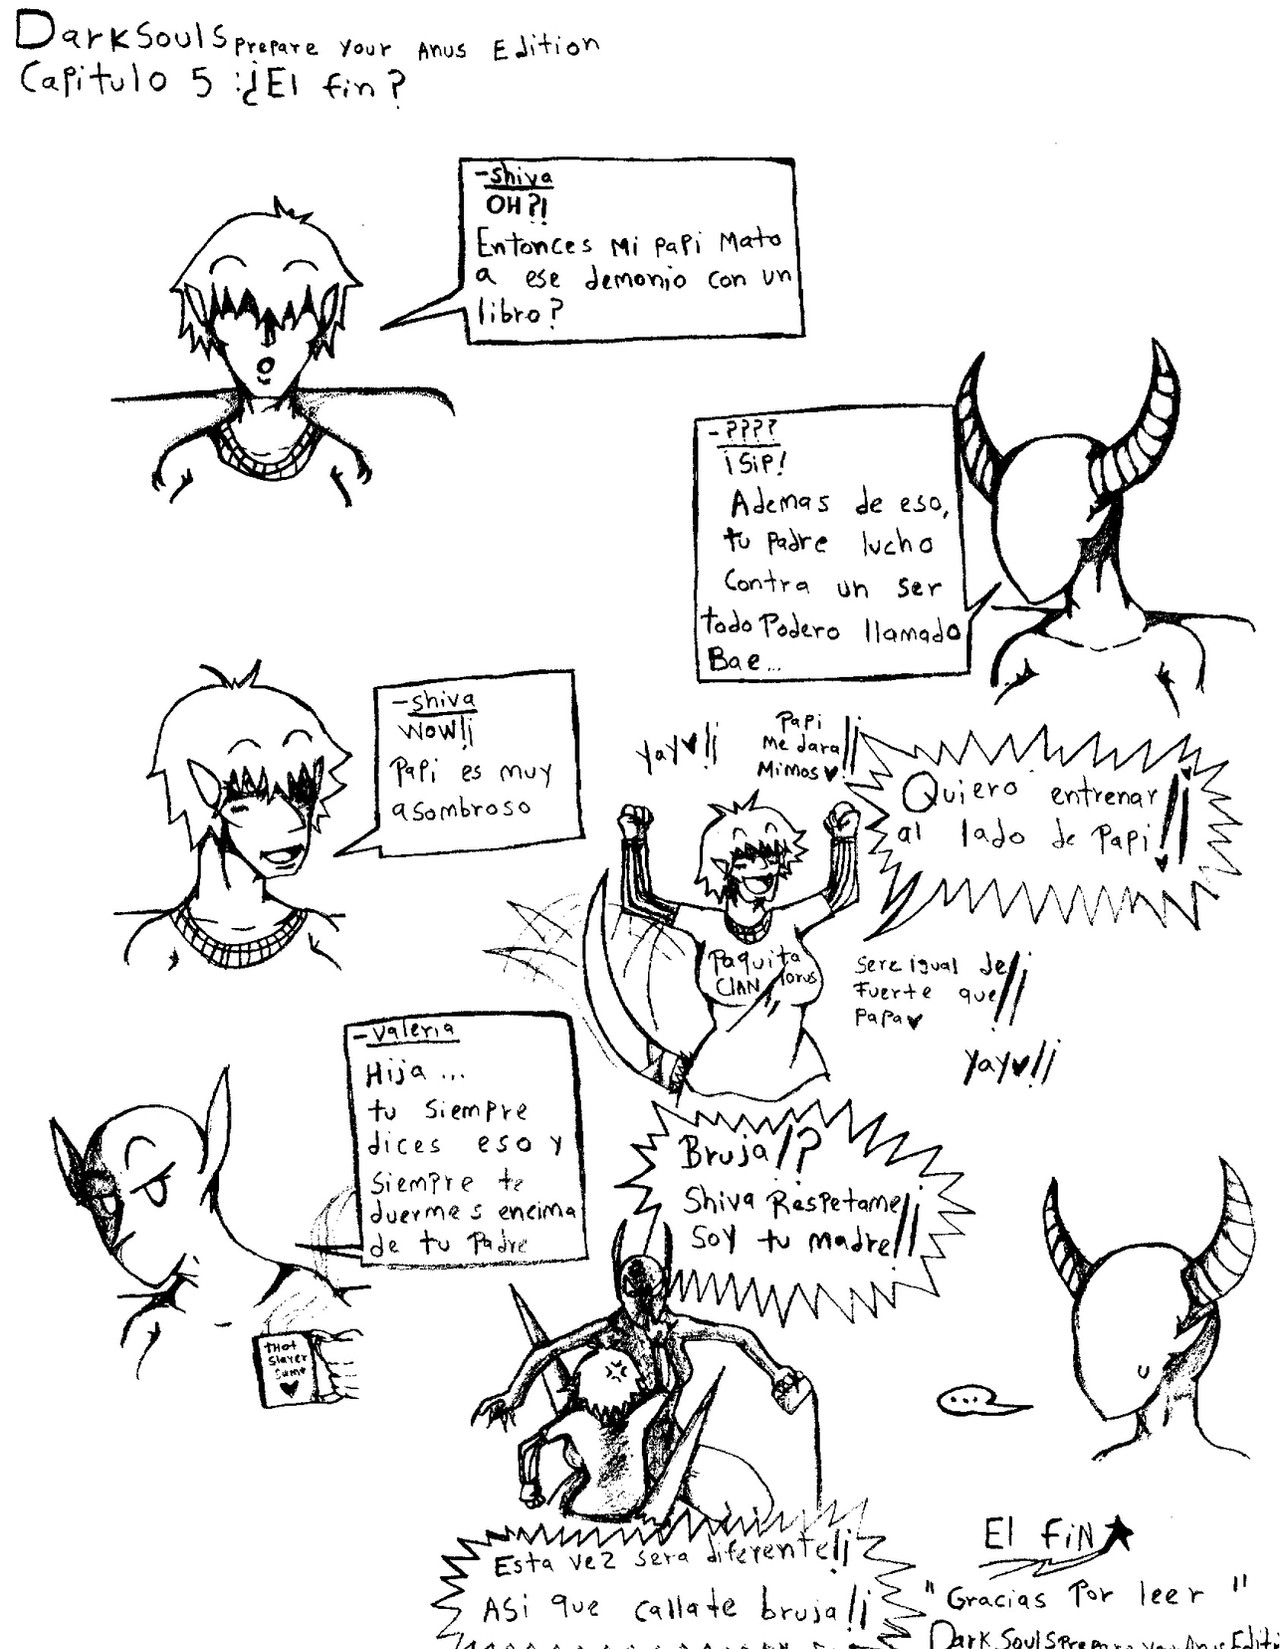 DarkSouls prepare your Anus Edition
Capitulo 5 :¿El fin?
-Shiva
OH?!
Entonces mi papi mato
a ese demonio con un
libro?
-????
¡Sip!
Ademas de eso,
tu padre lucho
Contra un ser
todo Podero llamado
Bae...
-shiva
WOW!¡
Papi es muy
asombroso
Yay♥!¡
Papi
me dara!¡
Mimos♥
Quiero entrenar
al lado de Papi!¡
Paquita
CLAN Torus
Sere igual de!¡
Fuerte que
Papa♥
Yay♥!¡
-Valeria
Hija ...
tu siempre
dices eso y
siempre te
duermes encima
de tu Padre
Bruja!?
Shiva Respetame!¡
SOY tu madre!¡
THot
Slayer
...
Esta vez sera diferente!¡
ASi que callate bruja!¡
El FiN★
"Gracias Por leer"
DarkSouls prepare your Anus Editi